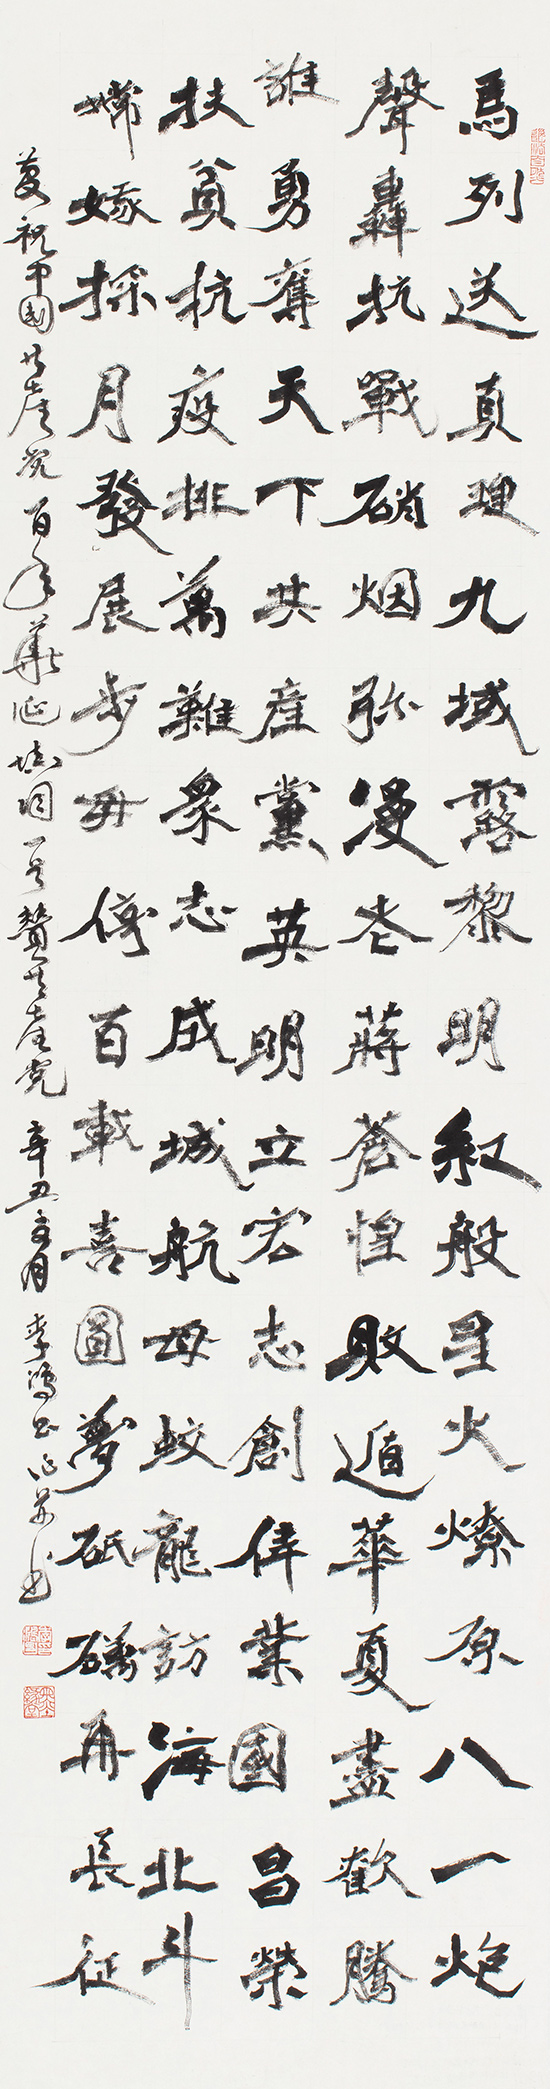 馬列送真理九域露黎明紅船星火燎原八一炮
聲轟抗戰硝烟弥漫老蔣蒼惶敗遁華夏盡歡騰
誰勇奪天下共產黨英明立宏志創偉業國昌榮
扶貧抗疫排萬難衆志成城航母蛟龍訪海北斗
嫦娥探月發展步毋停百載喜圓夢砥礪再長征
慶祝中國共產黨百年華誕填詞一首贊共產黨辛丑夏月李